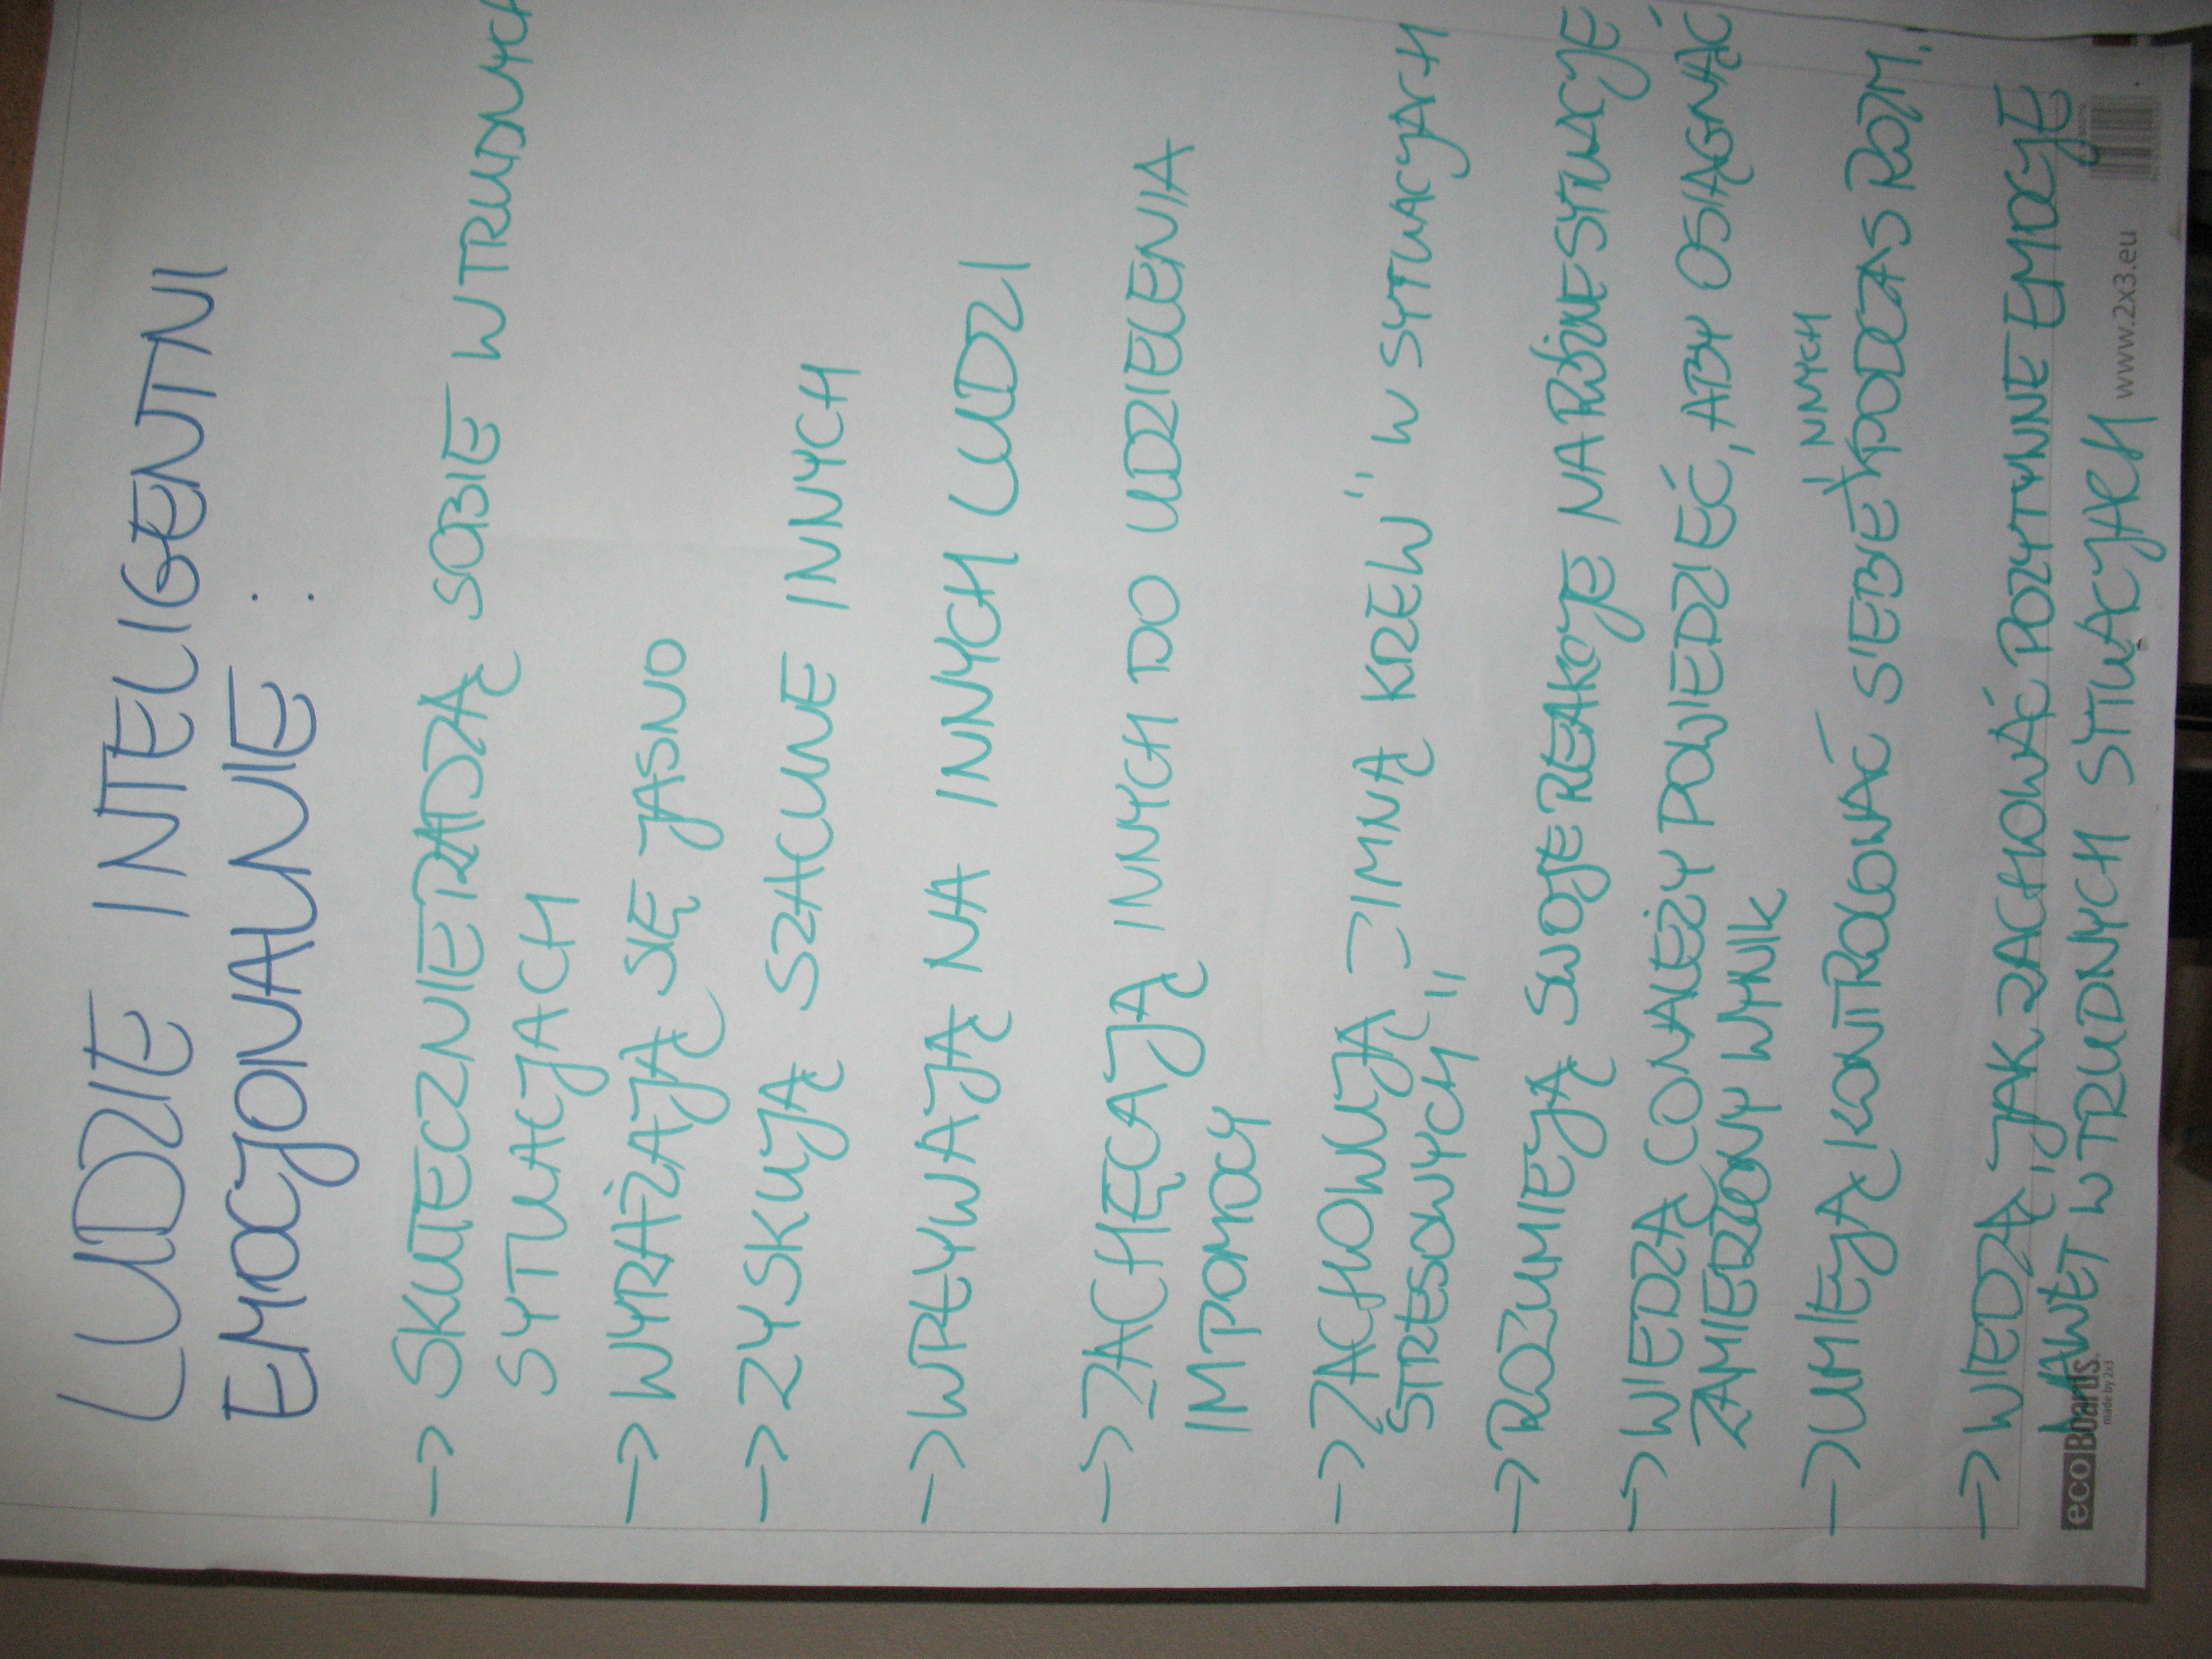 LUDZIE INTELIGENTNI
EMOCJONALNIE :
→ SKUTECZNIE RADZĄ SOBIE W TRUDNYCH
SYTUACJACH
→ WYRAŻAJĄ SIĘ JASNO
→ ZYSKUJĄ SZACUNE INNYCH
→ WPŁYWAJĄ NA INNYCH LUDZI
→ ZACHĘCAJĄ INNYCH DO UDZIELENIA
IM POMOCY
→ ZACHOWUJĄ „ZIMNĄ KREW" W SYTUACJACH
STRESOWYCH"
→ ROZUMIEJĄ SWOJE REAKCJE NA RÓŻNE SYTUACJE
→ WIEDZĄ CO NALEŻY POWIEDZIEĆ, ABY OSIĄGNĄĆ
ZAMIERZONY WYNIK
→ UMIEJĄ KONTROLOWAĆ SIEBIE I INNYCH PODCZAS ROZM.
→ WIEDZĄ, JAK ZACHOWAĆ POZYTYWNE EMOCJE
NAWET W TRUDNYCH SYTUACJACH
ecoBoards
made by 2x3
www.2x3.eu